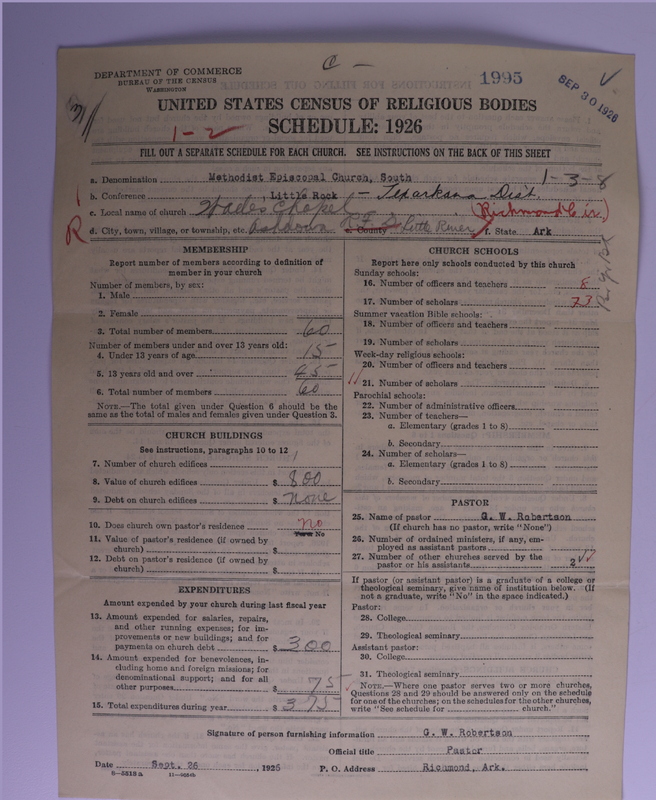 C —
DEPARTMENT OF COMMERCE
BUREAU OF THE CENSUS
WASHINGTON
1995
SEP 30 1926
UNITED STATES CENSUS OF RELIGIOUS BODIES
1-2
SCHEDULE: 1926
FILL OUT A SEPARATE SCHEDULE FOR EACH CHURCH. SEE INSTRUCTIONS ON THE BACK OF THIS SHEET
a. Denomination Methodist Episcopal Church, South 1-3-8
b. Conference Little Rock — Texarkana Dist.
c. Local name of church Wades Chapel (Richmond Cir.)
R
d. City, town, village, or township, etc. Ashdown R.F.D. e. County Little River f. State Ark
MEMBERSHIP
Report number of members according to definition of
member in your church
Number of members, by sex:
1. Male
2. Female
3. Total number of members 60
Number of members under and over 13 years old:
4. Under 13 years of age 15
5. 13 years old and over 45
6. Total number of members 60
NOTE.—The total given under Question 6 should be the
same as the total of males and females given under Question 3.
CHURCH BUILDINGS
See instructions, paragraphs 10 to 12
7. Number of church edifices 1
8. Value of church edifices $ 800
9. Debt on church edifices $ None
10. Does church own pastor's residence No
Yes or No
11. Value of pastor's residence (if owned by
church) $
12. Debt on pastor's residence (if owned by
church) $
EXPENDITURES
Amount expended by your church during last fiscal year
13. Amount expended for salaries, repairs,
and other running expenses; for im-
provements or new buildings; and for
payments on church debt $ 300
14. Amount expended for benevolences, in-
cluding home and foreign missions; for
denominational support; and for all
other purposes $ 75
15. Total expenditures during year $ 375
CHURCH SCHOOLS
Report here only schools conducted by this church
Sunday schools:
16. Number of officers and teachers 8
17. Number of scholars 77
Summer vacation Bible schools:
18. Number of officers and teachers
19. Number of scholars
Week-day religious schools:
20. Number of officers and teachers
21. Number of scholars
Parochial schools:
22. Number of administrative officers
23. Number of teachers—
a. Elementary (grades 1 to 8)
b. Secondary
24. Number of scholars—
a. Elementary (grades 1 to 8)
b. Secondary
PASTOR
25. Name of pastor G. W. Robertson
(If church has no pastor, write "None")
26. Number of ordained ministers, if any, em-
ployed as assistant pastors
27. Number of other churches served by the
pastor or his assistants 2
If pastor (or assistant pastor) is a graduate of a college or
theological seminary, give name of institution below. (If
not a graduate, write "No" in the space indicated.)
Pastor:
28. College
29. Theological seminary
Assistant pastor:
30. College
31. Theological seminary
NOTE.—Where one pastor serves two or more churches,
Questions 28 and 29 should be answered only on the schedule
for one of the churches; on the schedules for the other churches,
write "See schedule for church."
Signature of person furnishing information G. W. Robertson
Official title Pastor
Date Sept. 26, 1926 P. O. Address Richmond, Ark.